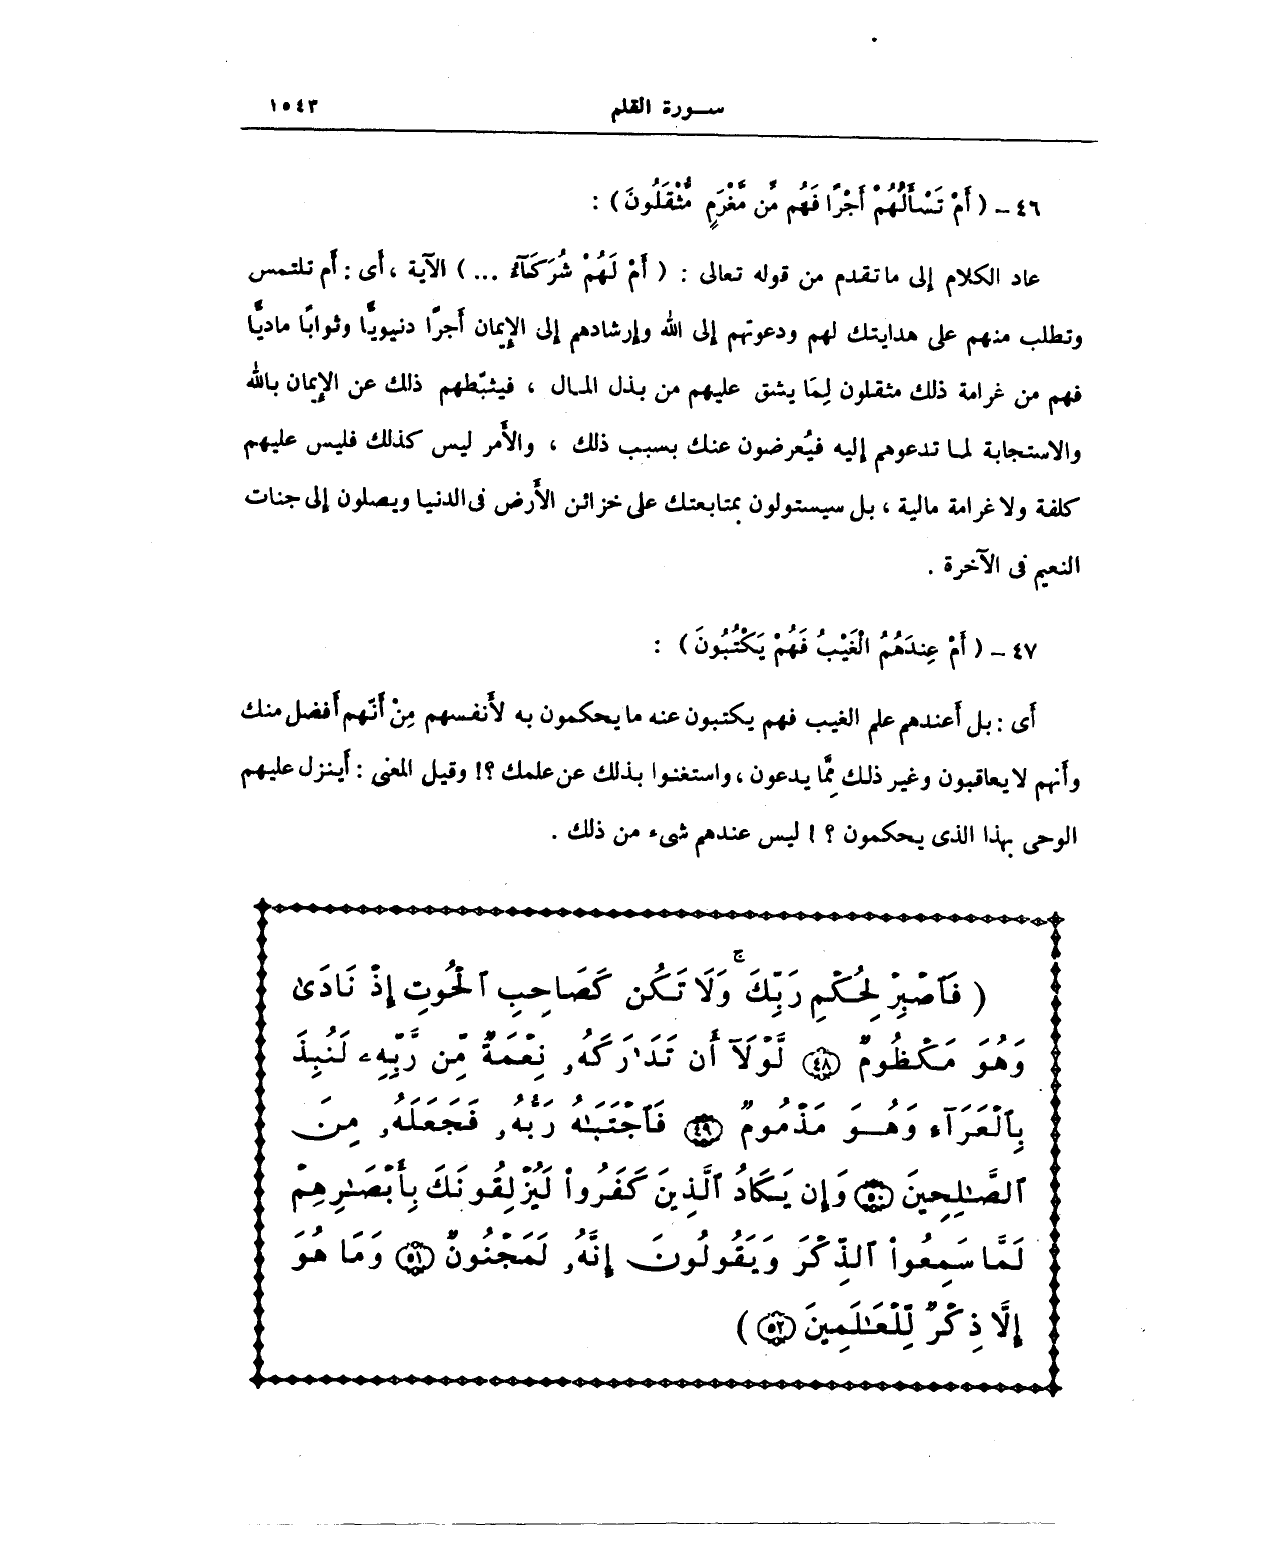 سورة القلم ١٥٤٣
٤٦ – ( أَمْ تَسْأَلُهُمْ أَجْرًا فَهُم مِّن مَّغْرَمٍ مُّثْقَلُونَ ) :
عاد الكلام إلى ما تقدم من قوله تعالى : ( أَمْ لَهُمْ شُرَكَآءُ ... ) الآية ، أى : أم تلتمس
وتطلب منهم على هدايتك لهم ودعوتهم إلى الله وإرشادهم إلى الإيمان أجرًا دنيويًّا وثوابًا ماديًّا
فهم من غرامة ذلك مثقلون لِمَا يشق عليهم من بذل المال ، فيثبّطهم ذلك عن الإيمان بالله
والاستجابة لما تدعوهم إليه فيُعرضون عنك بسبب ذلك ، والأمر ليس كذلك فليس عليهم
كلفة ولا غرامة مالية ، بل سيستولون بمتابعتك على خزائن الأرض فى الدنيا ويصلون إلى جنات
النعيم فى الآخرة .
٤٧ – ( أَمْ عِندَهُمُ الْغَيْبُ فَهُمْ يَكْتُبُونَ ) :
أى : بل أعندهم علم الغيب فهم يكتبون عنه ما يحكمون به لأنفسهم مِنْ أنّهم أفضل منك
وأنهم لا يعاقبون وغير ذلك مِمَّا يدعون ، واستغنوا بذلك عن علمك ؟! وقيل المعنى : أينزل عليهم
الوحى بهذا الذى يحكمون ؟ ! ليس عندهم شىء من ذلك .
( فَٱصْبِرْ لِحُكْمِ رَبِّكَ ۚ وَلَا تَكُن كَصَاحِبِ ٱلْحُوتِ إِذْ نَادَىٰ
وَهُوَ مَكْظُومٌ ﴿٤٨﴾ لَّوْلَآ أَن تَدَٰرَكَهُۥ نِعْمَةٌ مِّن رَّبِّهِۦ لَنُبِذَ
بِٱلْعَرَآءِ وَهُوَ مَذْمُومٌ ﴿٤٩﴾ فَٱجْتَبَٰهُ رَبُّهُۥ فَجَعَلَهُۥ مِنَ
ٱلصَّٰلِحِينَ ﴿٥٠﴾ وَإِن يَكَادُ ٱلَّذِينَ كَفَرُوا۟ لَيُزْلِقُونَكَ بِأَبْصَٰرِهِمْ
لَمَّا سَمِعُوا۟ ٱلذِّكْرَ وَيَقُولُونَ إِنَّهُۥ لَمَجْنُونٌ ﴿٥١﴾ وَمَا هُوَ
إِلَّا ذِكْرٌ لِّلْعَٰلَمِينَ ﴿٥٢﴾ )